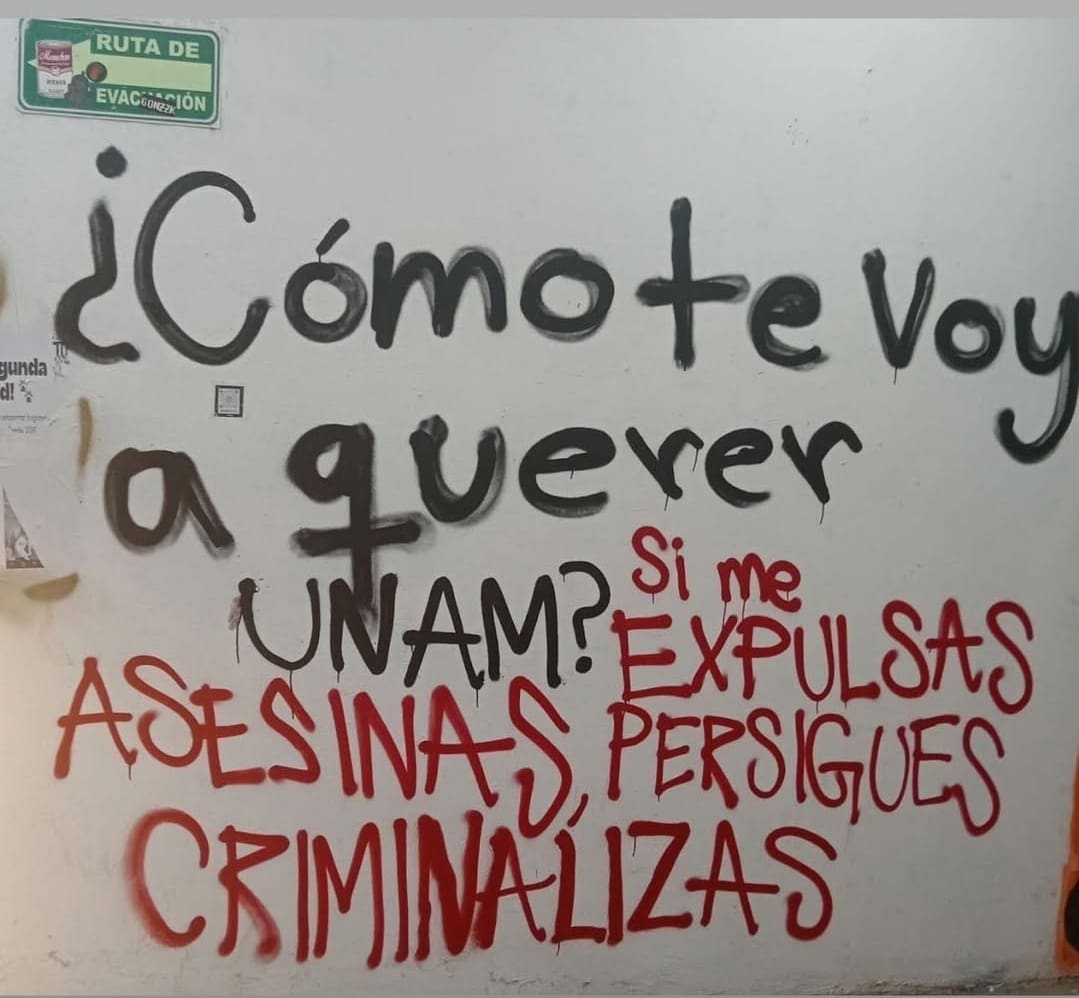 RUTA DE
EVACUACIÓN
GONZZK
gunda
d!
¿Cómo te voy
a querer
UNAM? Si me
EXPULSAS
ASESINAS, PERSIGUES
CRIMINALIZAS